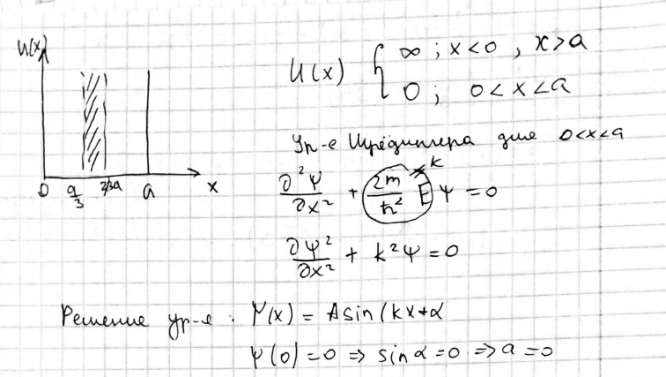 U(x)
0 a/3 2/3a a x
U(x) { ∞ ; x<0 , x>a
0 ; 0<x<a
Ур-е Шрёдингера для 0<x<a
∂²Ψ/∂x² + 2m/ħ² E Ψ = 0
k
∂Ψ²/∂x² + k²Ψ = 0
Решение ур-е : Ψ(x) = A sin(kx+α
Ψ(0) = 0 => sin α = 0 => a = 0